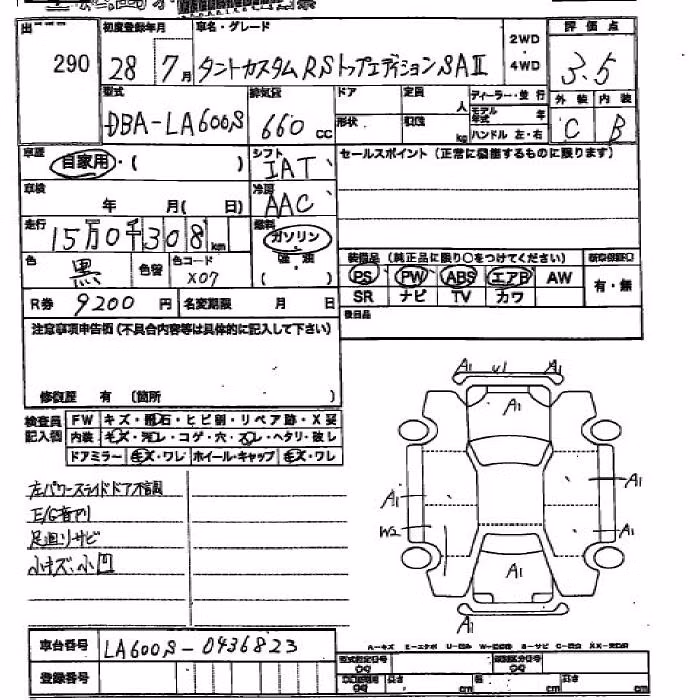 初度登録年月 車名・グレード 2WD 評価点
290 28 7月 タントカスタムRSトップエディションSAⅡ ・4WD 3.5
型式 排気量 ドア 定員 人 ディーラー・並行 外装 内装
DBA-LA600S 660cc 形状 積載 kg モデル年式 年 C B
ハンドル 左・右
車歴 自家用・( ) シフト IAT セールスポイント(正常に機能するものに限ります)
車検 年 月( 日) 冷房 AAC
走行 15万0千308km 燃料 ガソリン
色 黒 色替 色コード X07 ( ) 装備品(純正品に限り○をつけてください)
PS PW ABS エアB AW 有・無
R券 9200円 名変期限 月 日 SR ナビ TV カワ
後日品
注意事項申告欄(不具合内容等は具体的に記入して下さい)
修復歴 有 (箇所 )
検査員記入欄 FW キズ・飛石・ヒビ割・リペア跡・X要
内装 キズ・汚れ・コゲ・穴・スレ・ヘタリ・破し
ドアミラー キズ・ワレ ホイール・キャップ キズ・ワレ
左パワースライドドア不調
E/G音アリ
足回リサビ
小キズ、小凹
A1 U1 A1
A1
A1 A1
W2 A1
A1
A1
車台番号 LA600S-0436823
登録番号
A-キズ E-エクボ U-凹み S-サビ
cm cm cm